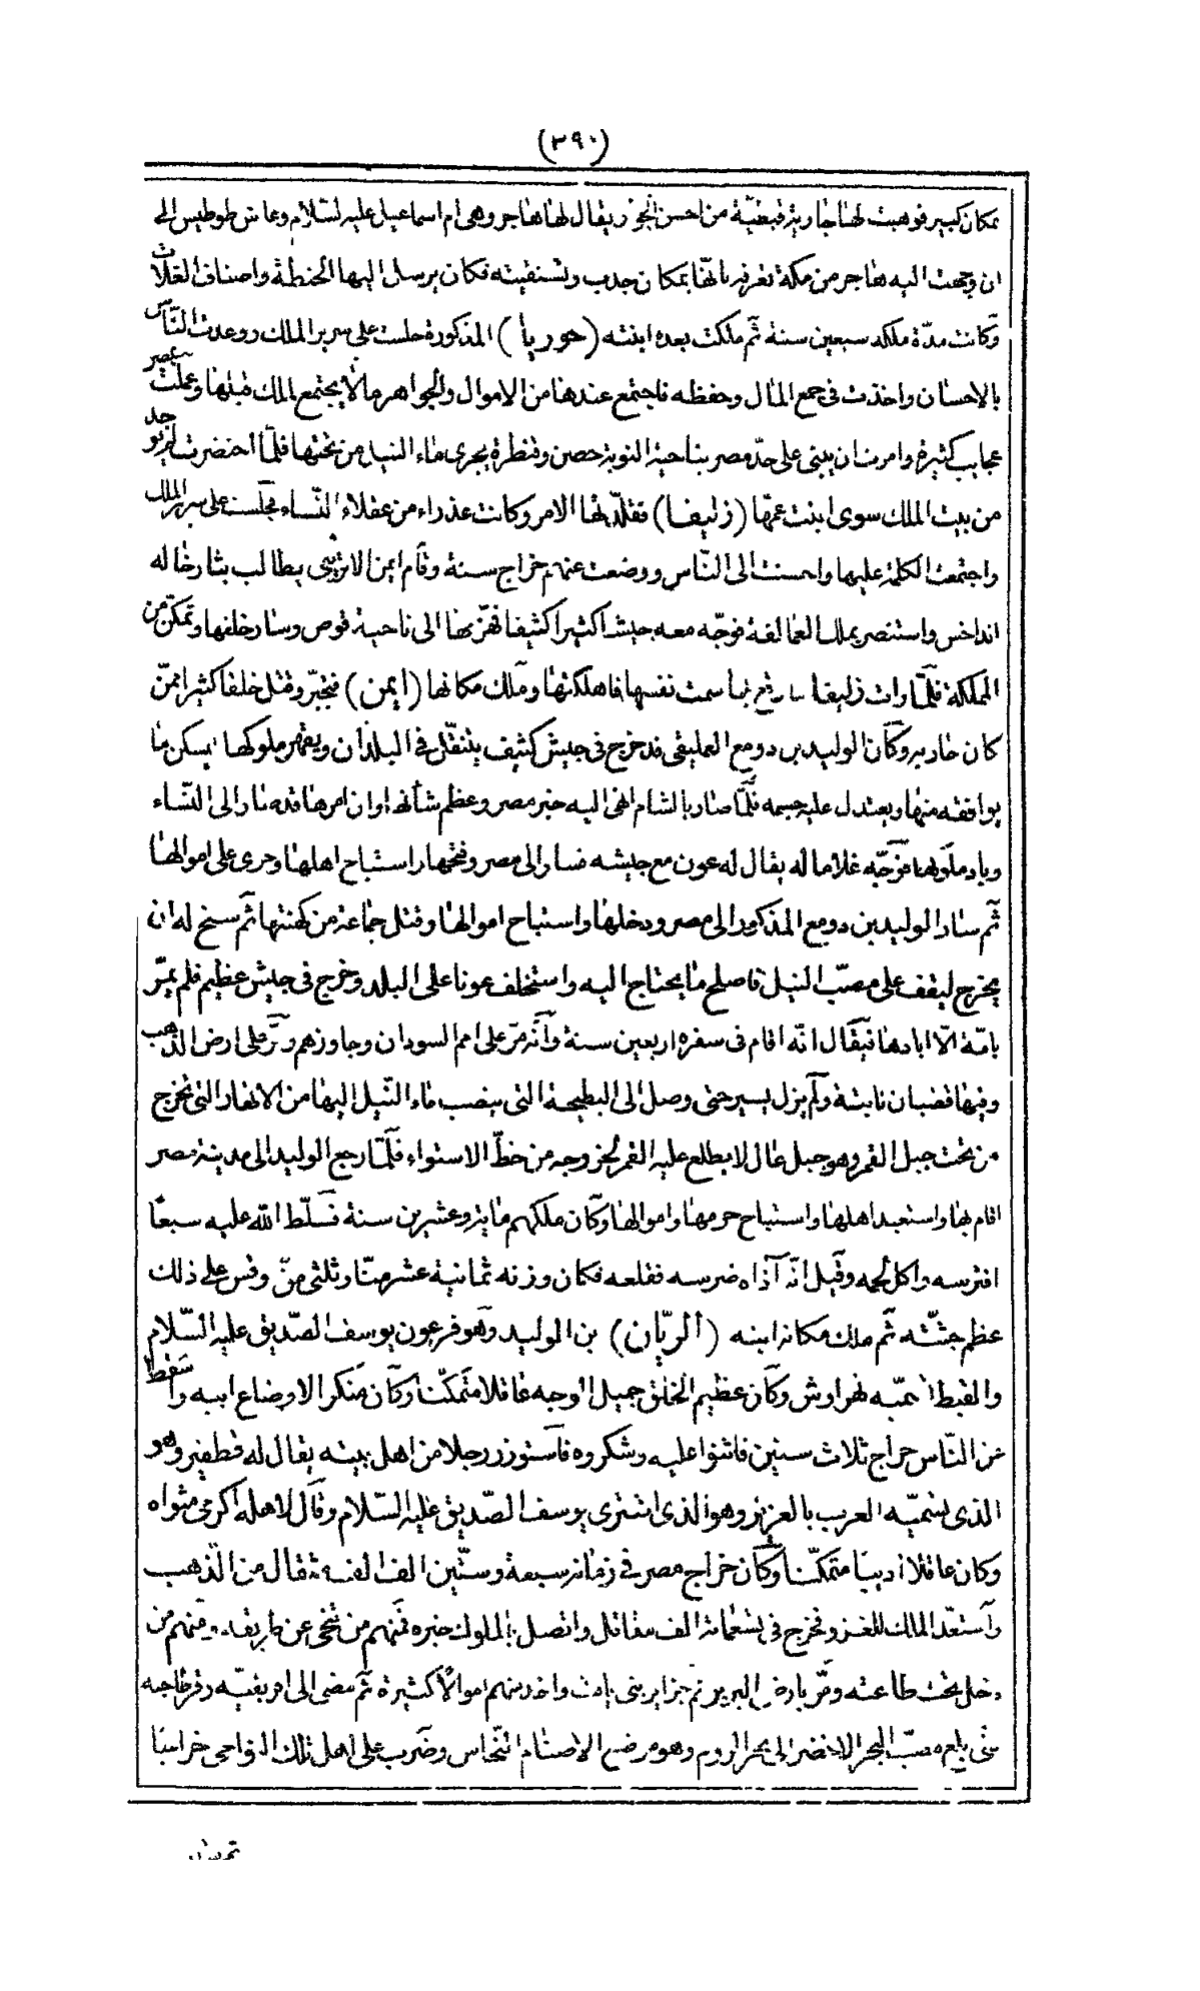 (٣٩٠)
بمكان كبير فوهبت لها جارية قبطية من احسن الجوار يقال لها هاجر وهى ام اسماعيل عليه السلام وعاش طوطيس الى
ان وجهت اليه هاجر من مكة تعرفه بانّها بمكان جدب وتستغيثه فكان يرسل اليها الحنطة واصناف الغلات
وكانت مدّة ملكه سبعين سنة ثم ملكت بعده ابنته (حوريا) المذكورة جلست على سرير الملك ووعدت النّاس
بالاحسان واخذت فى جمع المال وحفظه فاجتمع عندها من الاموال والجواهر ما لا يجتمع لملك قبلها وعملت بمصر
عجايب كثيرة وامرت ان يبنى على حدّ مصر بناحية النوبة حصن وقنطرة يجرى ماء النيل من تحتها فلمّا احتضرت لم يوجد
من بيت الملك سوى ابنت عمّها (زليفا) فقلّدتها الامر وكانت عذراء من عقلاء النّساء فجلست على سرير الملك
واجتمعت الكلمة عليها واحسنت الى النّاس ووضعت عنهم خراج سنة وقام ايمن الاتريبى يطالب بثار خاله
انداخس واستنصر بملك العمالقة فوجّه معه جيشا كثيرا كثيفا فهزّمها الى ناحية قوص وسار خلفها وتمكّن من
المملكة فلمّا رات زليفا سمت نفسها فاهلكتها وملك مكانها (ايمن) فتجبّر وقتل خلقا كثيرا ممّن
كان حاربه وكان الوليد بن دومع العمليقى قد خرج فى جيش كثيف يتنقّل فى البلدان ويقهر ملوكها ليسكن ما
يوافقه منها ويعتدل عليه جسمه فلمّا صار بالشام انهى اليه خبر مصر وعظم شأنها وان امرها قد صار الى النّساء
وباد ملوكها فوجّه غلاما له يقال له عون مع جيشه فسار الى مصر وفتحها واستباح اهلها وحوى على اموالها
ثم سار الوليد بن دومع المذكور الى مصر ودخلها واستباح اموالها وقتل جماعة من كهنتها ثم سنح له ان
يخرج ليقف على مصبّ النيل فاصلح ما يحتاج اليه واستخلف عونا على البلد وخرج فى جيش عظيم فلم يمرّ
بامّة الّا ابادها فيقال انّه اقام فى سفره اربعين سنة وانّه مرّ على امم السودان وجاوزهم ومرّ على ارض الذهب
وفيها قضبان نابتة ولم يزل يسير حتى وصل الى البطيحة التى ينصب ماء النّيل اليها من الانهار التى تخرج
من تحت جبل القمر وهو جبل عال لا يطلع عليه القمر لخروجه من خطّ الاستواء فلمّا رجع الوليد الى مدينة مصر
اقام بها واستعبد اهلها واستباح حرمها واموالها وكان ملكهم ماية وعشرين سنة فسلّط اللّه عليه سبعًا
افترسه واكل لحمه وقيل انّه آذاه ضرسه فقلعه فكان وزنه ثمانية عشر منّا وثلثى منّ وقس على ذلك
عظم جثّته ثم ملك مكانه ابنه (الريّان) بن الوليد وهو فرعون يوسف الصّديق عليه السّلام
والقبط تسمّيه نهراوش وكان عظيم الخلق جميل الوجه عاقلا متمكّنا وكان منكرا لاوضاع ابيه واسقط
عن النّاس خراج ثلاث سنين فاثنوا عليه وشكروه فاستوزر رجلا من اهل بيته يقال له قطفير وهو
الذى تسمّيه العرب بالعزيز وهو الذى اشترى يوسف الصّديق عليه السّلام وقال لاهله اكرمى مثواه
وكان عاقلا اديبا متمكّنا وكان خراج مصر فى زمانه سبعة وستّين الف الف مثقال من الذّهب
واستعدّ الملك للغزو فخرج فى تسعماية الف مقاتل واتصل بالملوك خبره فمنهم من تنحّى عن طريقه ومنهم من
دخل تحت طاعته ومرّ بارض البربر ثم جزاير بنى يافث واخذ منهم اموالًا كثيرة ثم مضى الى افريقيّه وقرطاجنه
حتّى بلغ مصبّ البحر الاخضر الى بحر الروم وهو موضع الاصنام النّحاس وضرب على اهل تلك النواحى خراجا